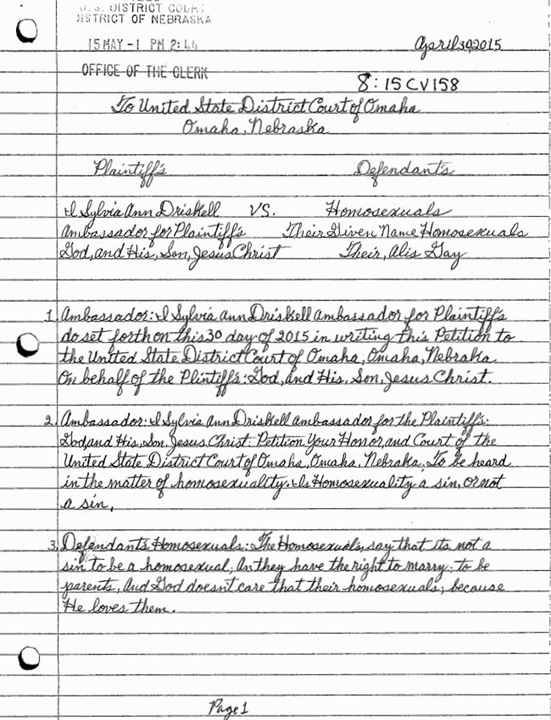 U.S. DISTRICT COURT
DISTRICT OF NEBRASKA
15 MAY -1 PM 2:44
April 30 2015
OFFICE OF THE CLERK
8:15CV158
To United State District Court of Omaha
Omaha, Nebraska
Plaintiff's Defendants
I Sylvia Ann Driskell VS. Homosexuals
Ambassador for Plaintiff's Their Given Name Homosexuals
God, and His, Son, Jesus Christ Their, Alis Gay
1. Ambassador: I Sylvia Ann Driskell Ambassador for Plaintiff's
do set forth on this 30 day of 2015 in writing this Petition to
the United State District Court of Omaha, Omaha, Nebraka.
On behalf of the Plintiff's: God, and His, Son, Jesus Christ.
2. Ambassador: I Sylvia Ann Driskell ambassador for the Plaintiff's:
God and His, Son, Jesus Christ. Petition Your Honor, and Court of the
United State District Court of Omaha, Omaha, Nebraka. To be heard
in the matter of homosexuality. Is Homosexuality a sin, or not
a sin,
3. Defendants Homosexuals: The Homosexuals, say that its not a
sin to be a homosexual; An they have the right to marry; to be
parents, And God doesnt care that their homosexuals; because
He loves them.
Page 1